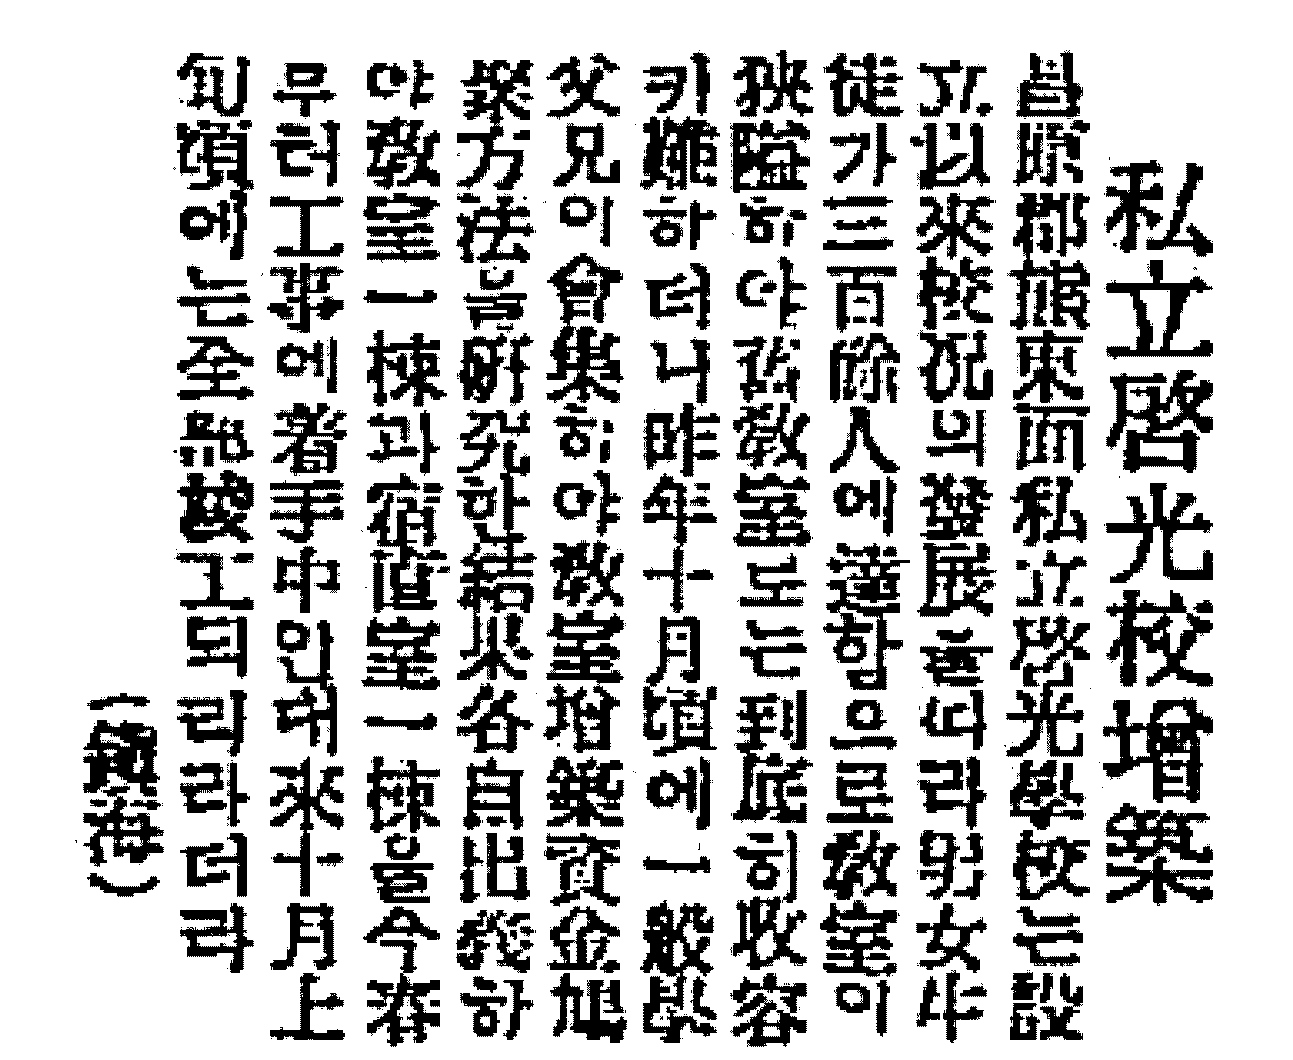 私立啓光校增築
昌原郡熊東面私立啓光學校는設
立以來校況의發展을따라男女生
徒가三百餘人에達함으로敎室이
狹隘하야舊敎室도는到底히收容
키難하더니昨年十月頃에一般學
父兄이會集하야敎室增築資金鳩
聚方法을硏究한結果各自出義하
야敎室一棟과宿直室一棟을今春
무터工事에着手中인대來十月上
旬頃에는全部竣工되리라더라
(鎭海)